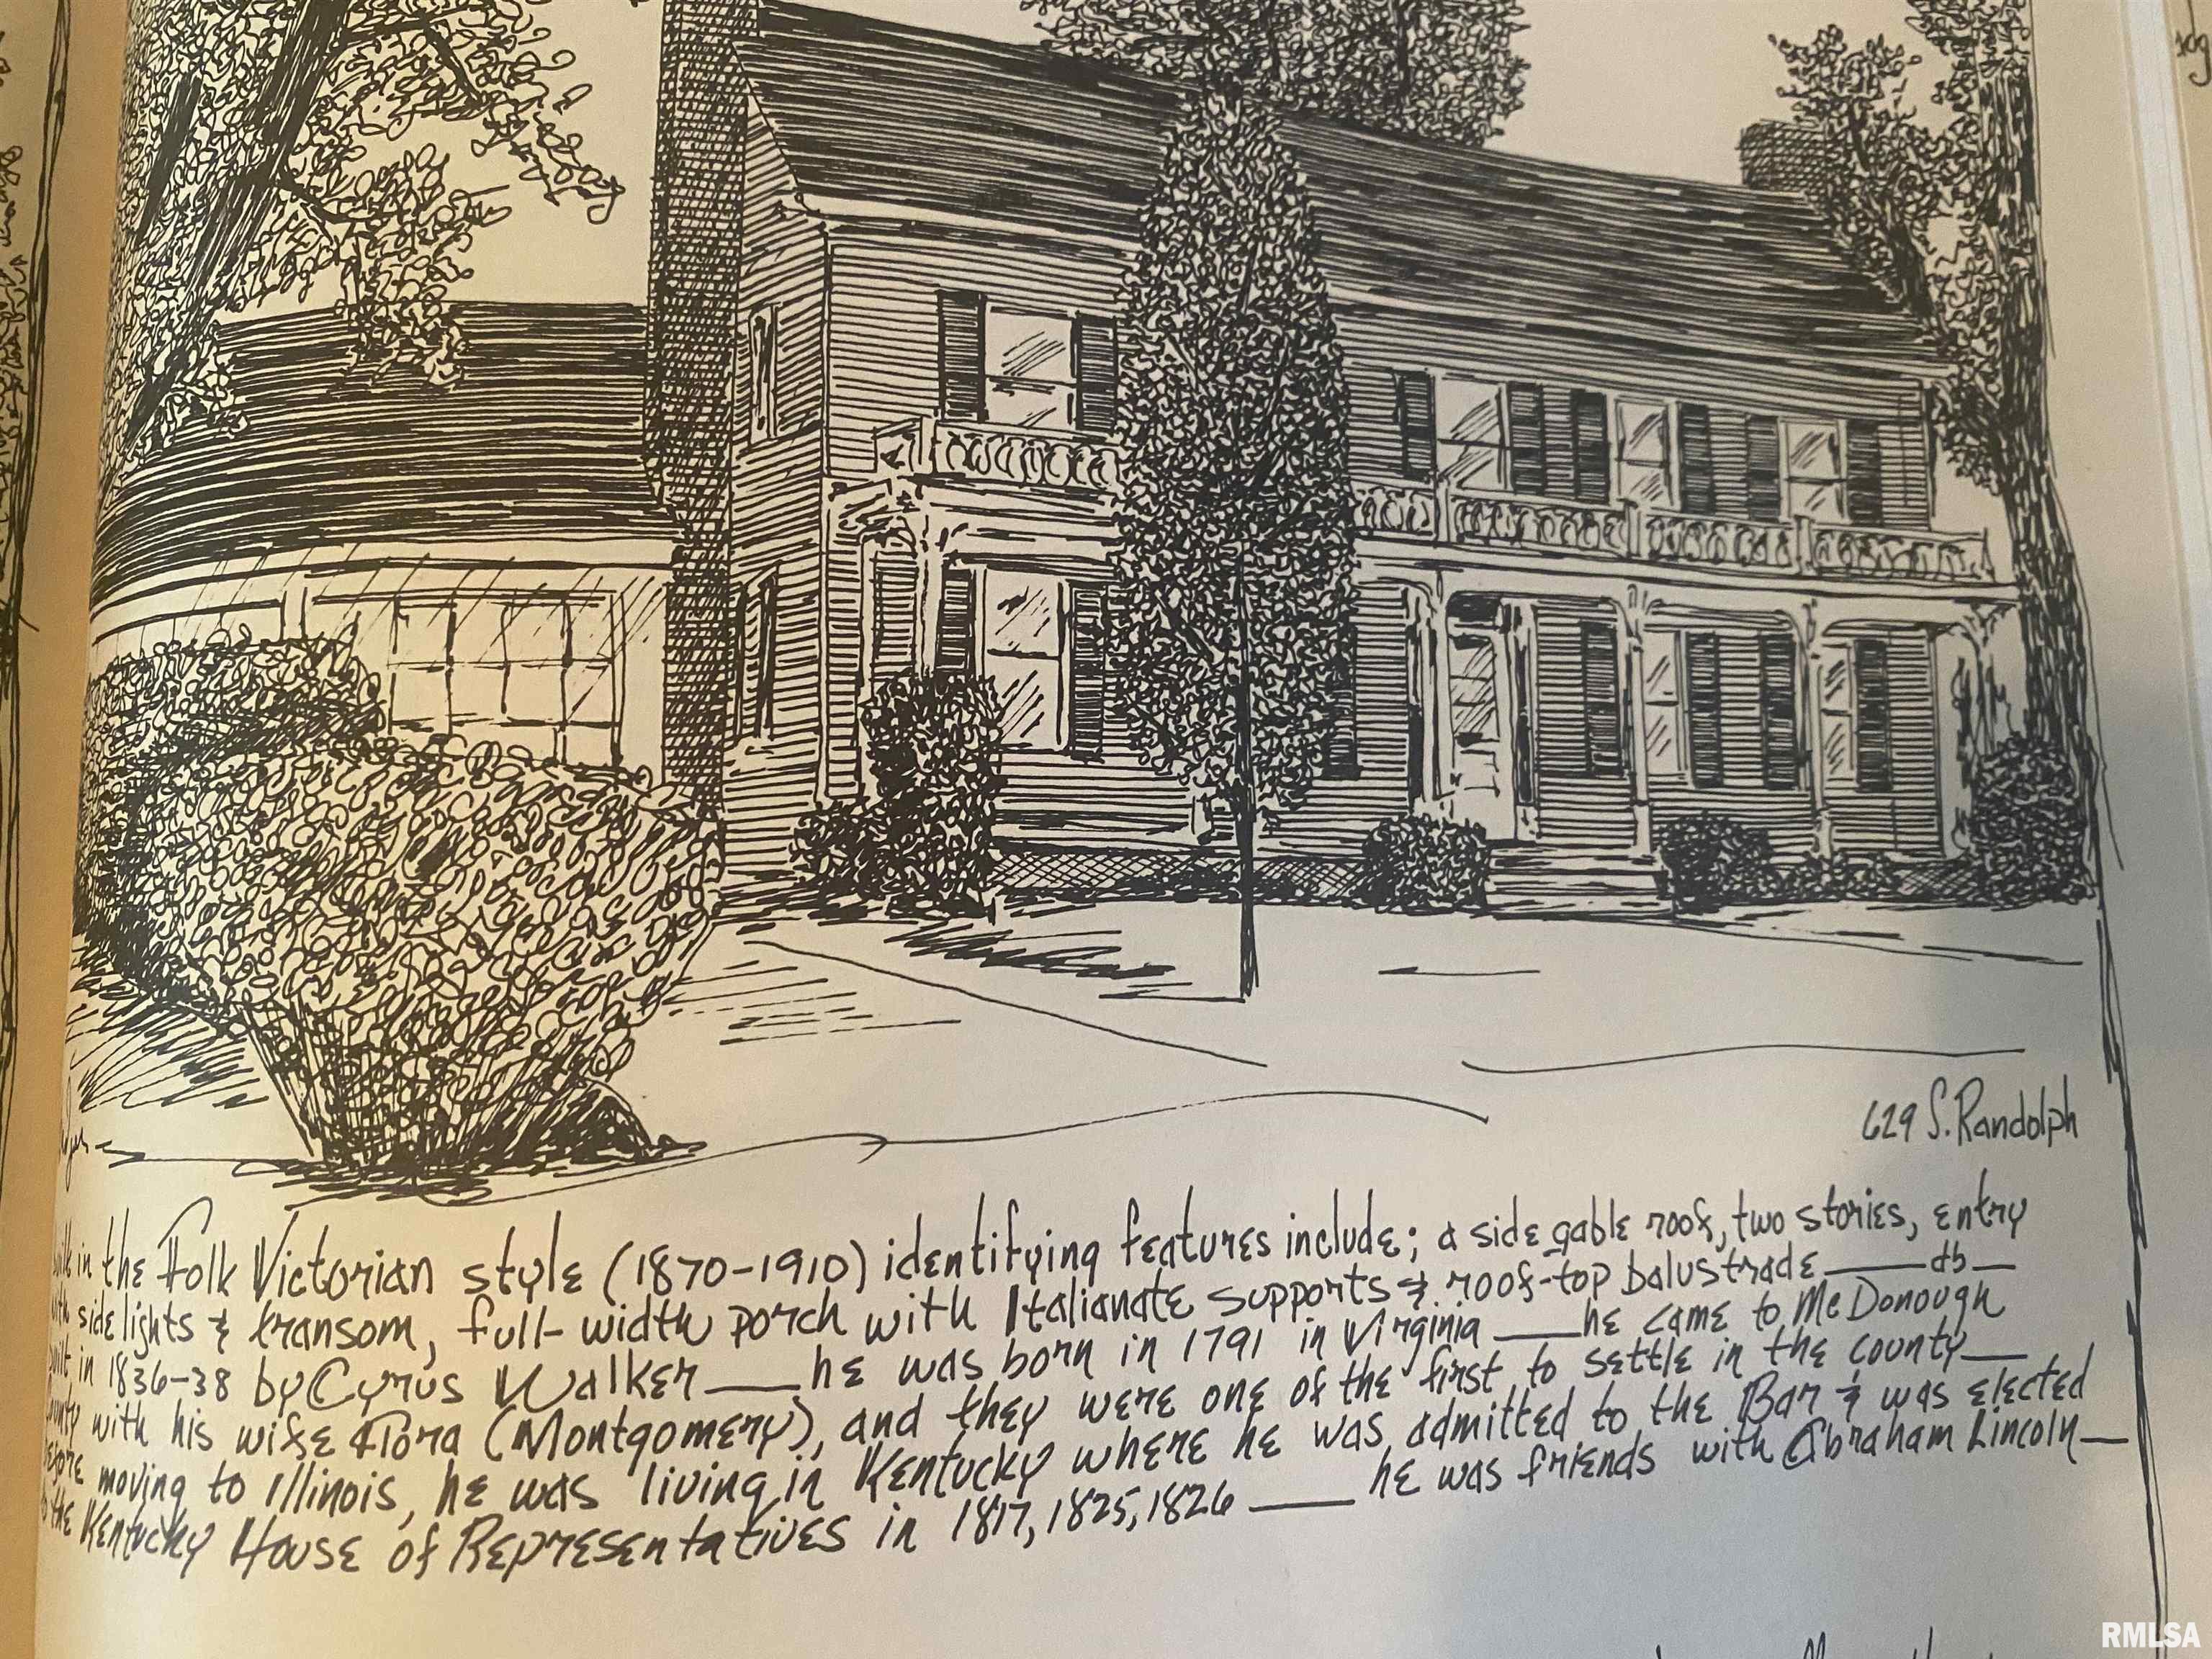 629 S. Randolph
in the Folk Victorian style (1870-1910) identifying features include; a side gable roof, two stories, entry
with side lights & transom, full-width porch with Italianate supports & roof-top balustrade
built in 1836-38 by Cyrus Walker — he was born in 1791 in Virginia — he came to McDonough
County with his wife Flora (Montgomery), and they were one of the first to settle in the county —
before moving to Illinois, he was living in Kentucky where he was admitted to the Bar & was elected
to the Kentucky House of Representatives in 1817, 1825, 1826 — he was friends with Abraham Lincoln —
RMLSA